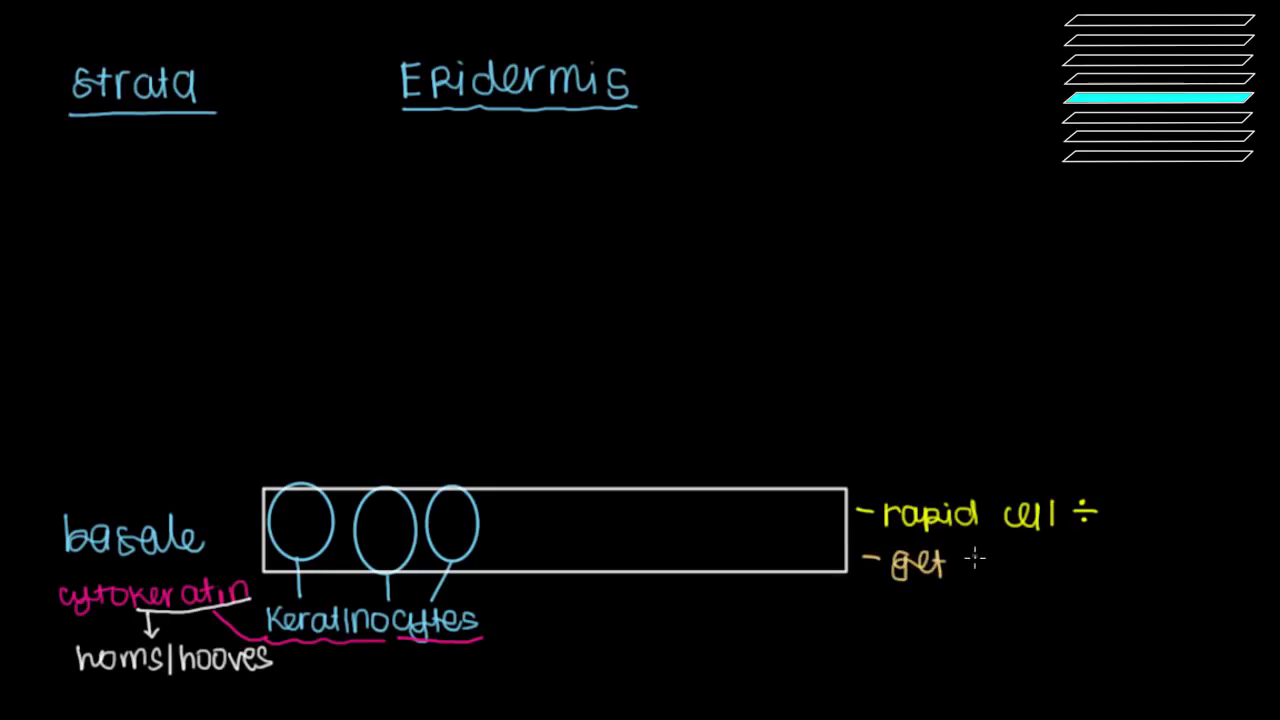 strata Epidermis
basale
- rapid cell ÷
- get
cytokeratin
keratinocytes
horns/hooves